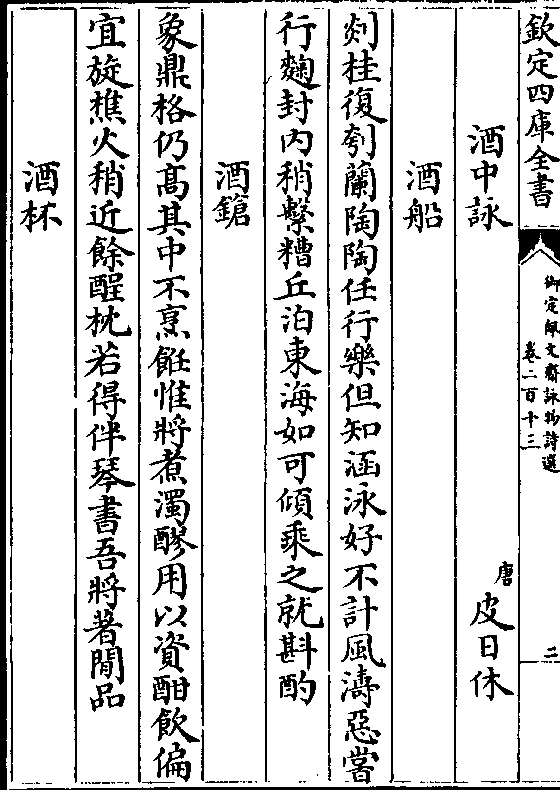 欽定四庫全書
御定佩文齋詠物詩選
卷二百十三
二
酒中詠　唐　皮日休
酒船
剡桂復刳蘭陶陶任行樂但知涵泳好不計風濤惡嘗
行麴封内稍繫糟丘泊東海如可傾乗之就斟酌
酒鎗
象鼎格仍髙其中不烹飪惟將煮濁醪用以資酣飲偏
宜旋樵火稍近餘酲枕若得伴琴書吾將著閒品
酒杯